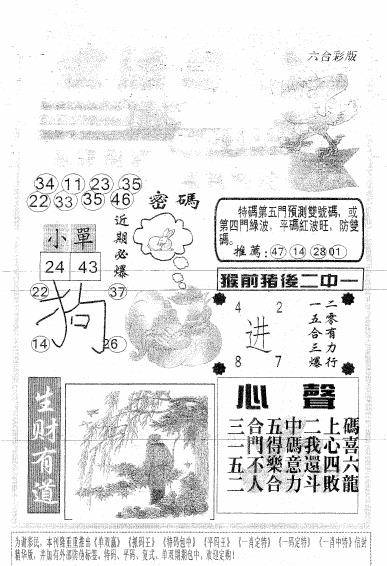 六台彩版
34 11 23 35
22 33 35 46
密碼
近期必爆
小單
24 43
22 37
狗
14 26
特碼第五門預測雙號碼，或
第四門綠波，平碼紅波旺，防雙
碼。
推薦：47 14 28 01
猴前猪後二中一
4 2
进
8 7
二零有力行
一五合三爆
生财有道
心聲
碼喜六龍
上心四敗
二我還斗
中碼意力
五得樂合
合門不人
三一五二
为谢彩民，本刊隆重推出《单双赢》《抓码王》《特码包中》《平码王》《一肖定特》《一码定特》《一肖中特》信封
精华版，并加有外部防伪标签，特码、平码、复式、单双期期包中，欢迎定购！